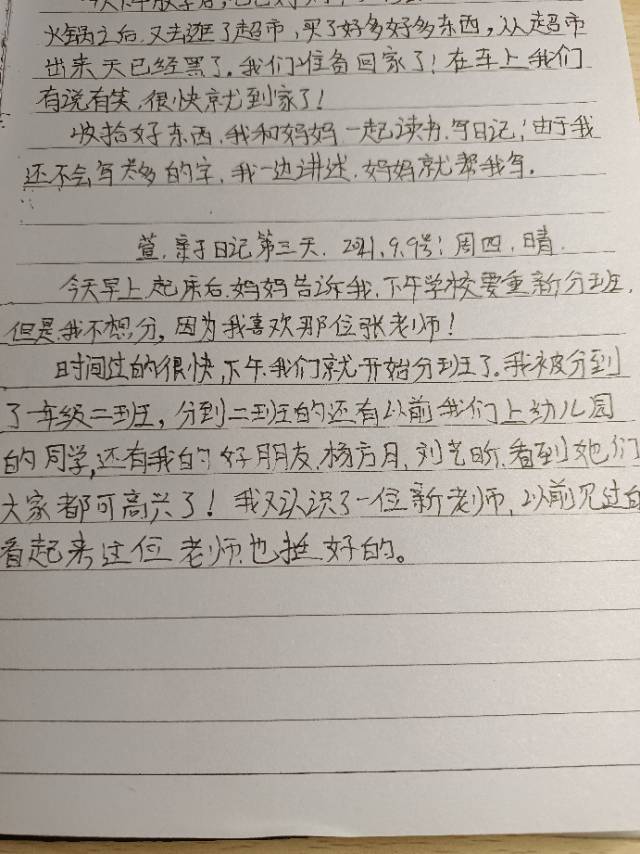 火锅之后.又去逛了超市,买了好多好多东西,从超市
出来天已经黑了.我们准备回家了!在车上我们
有说有笑.很快就到家了!
收拾好东西.我和妈妈一起读书.写日记;由于我
还不会写太多的字,我一边讲述.妈妈就帮我写.
萱.亲子日记第三天.2021,9.9号;周四.晴.
今天早上起床后.妈妈告诉我.下午学校要重新分班.
但是.我不想分,因为我喜欢那位张老师!
时间过的很快,下午.我们就开始分班了.我被分到
了一年级二班,分到二班的还有以前我们上幼儿园
的同学,还有我的好朋友.杨方月.刘艺昕.看到她们
大家都可高兴了!我又认识了一位新老师,以前见过的
看起来这位老师.也挺好的。